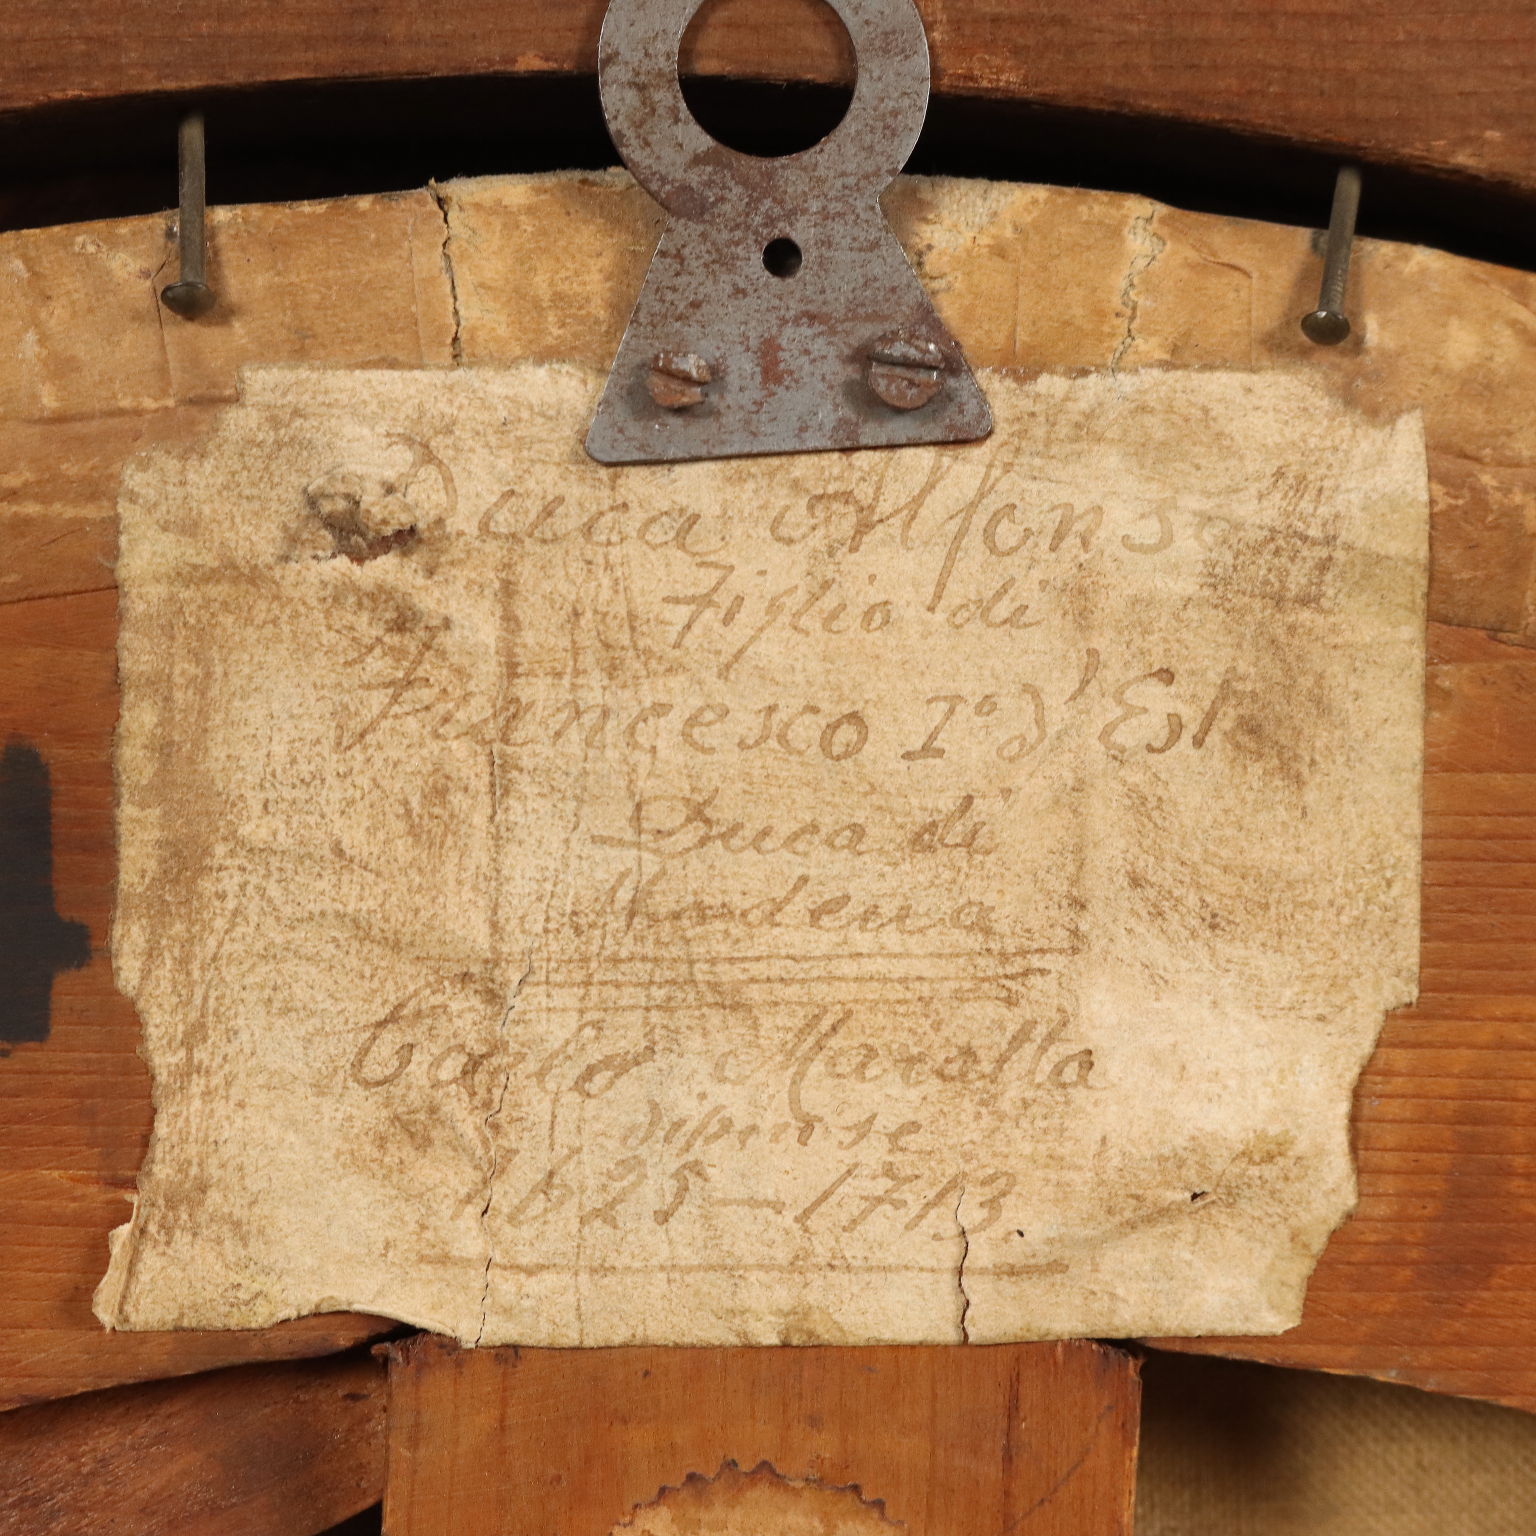 Duca Alfonso
Figlio di
Francesco I° d' Est
Duca di
Modena
Carlo Maratta
dipinse
1625-1713.